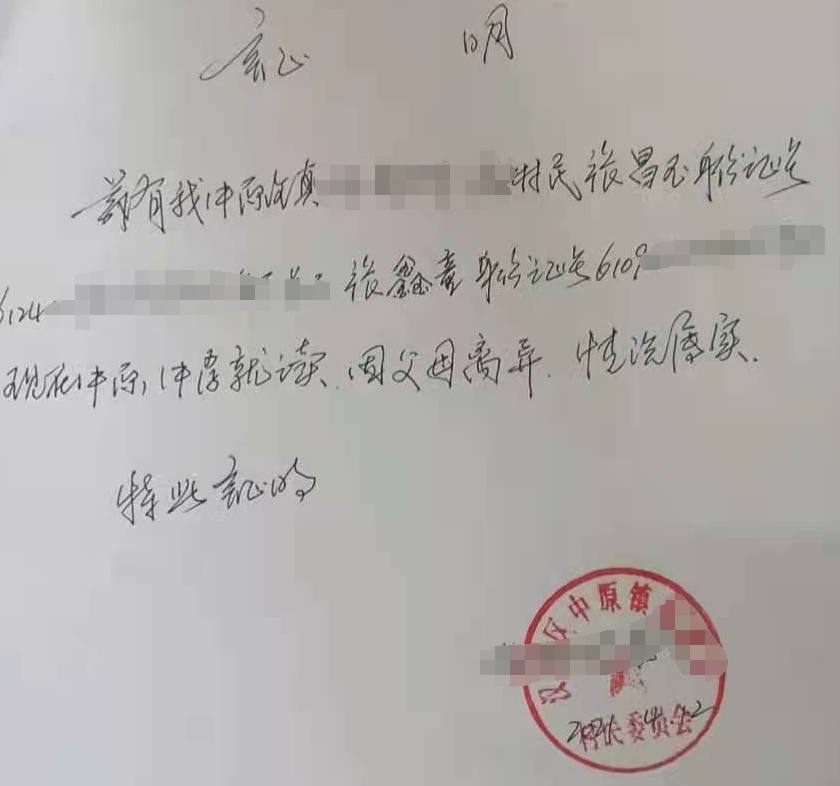 证 明
兹有我中原镇 村民张昌玉身份证号
6124 张鑫童身份证号6109
现在中原中学就读.因父母离异.情况属实.
特此证明
汉 区中原镇
村民委员会